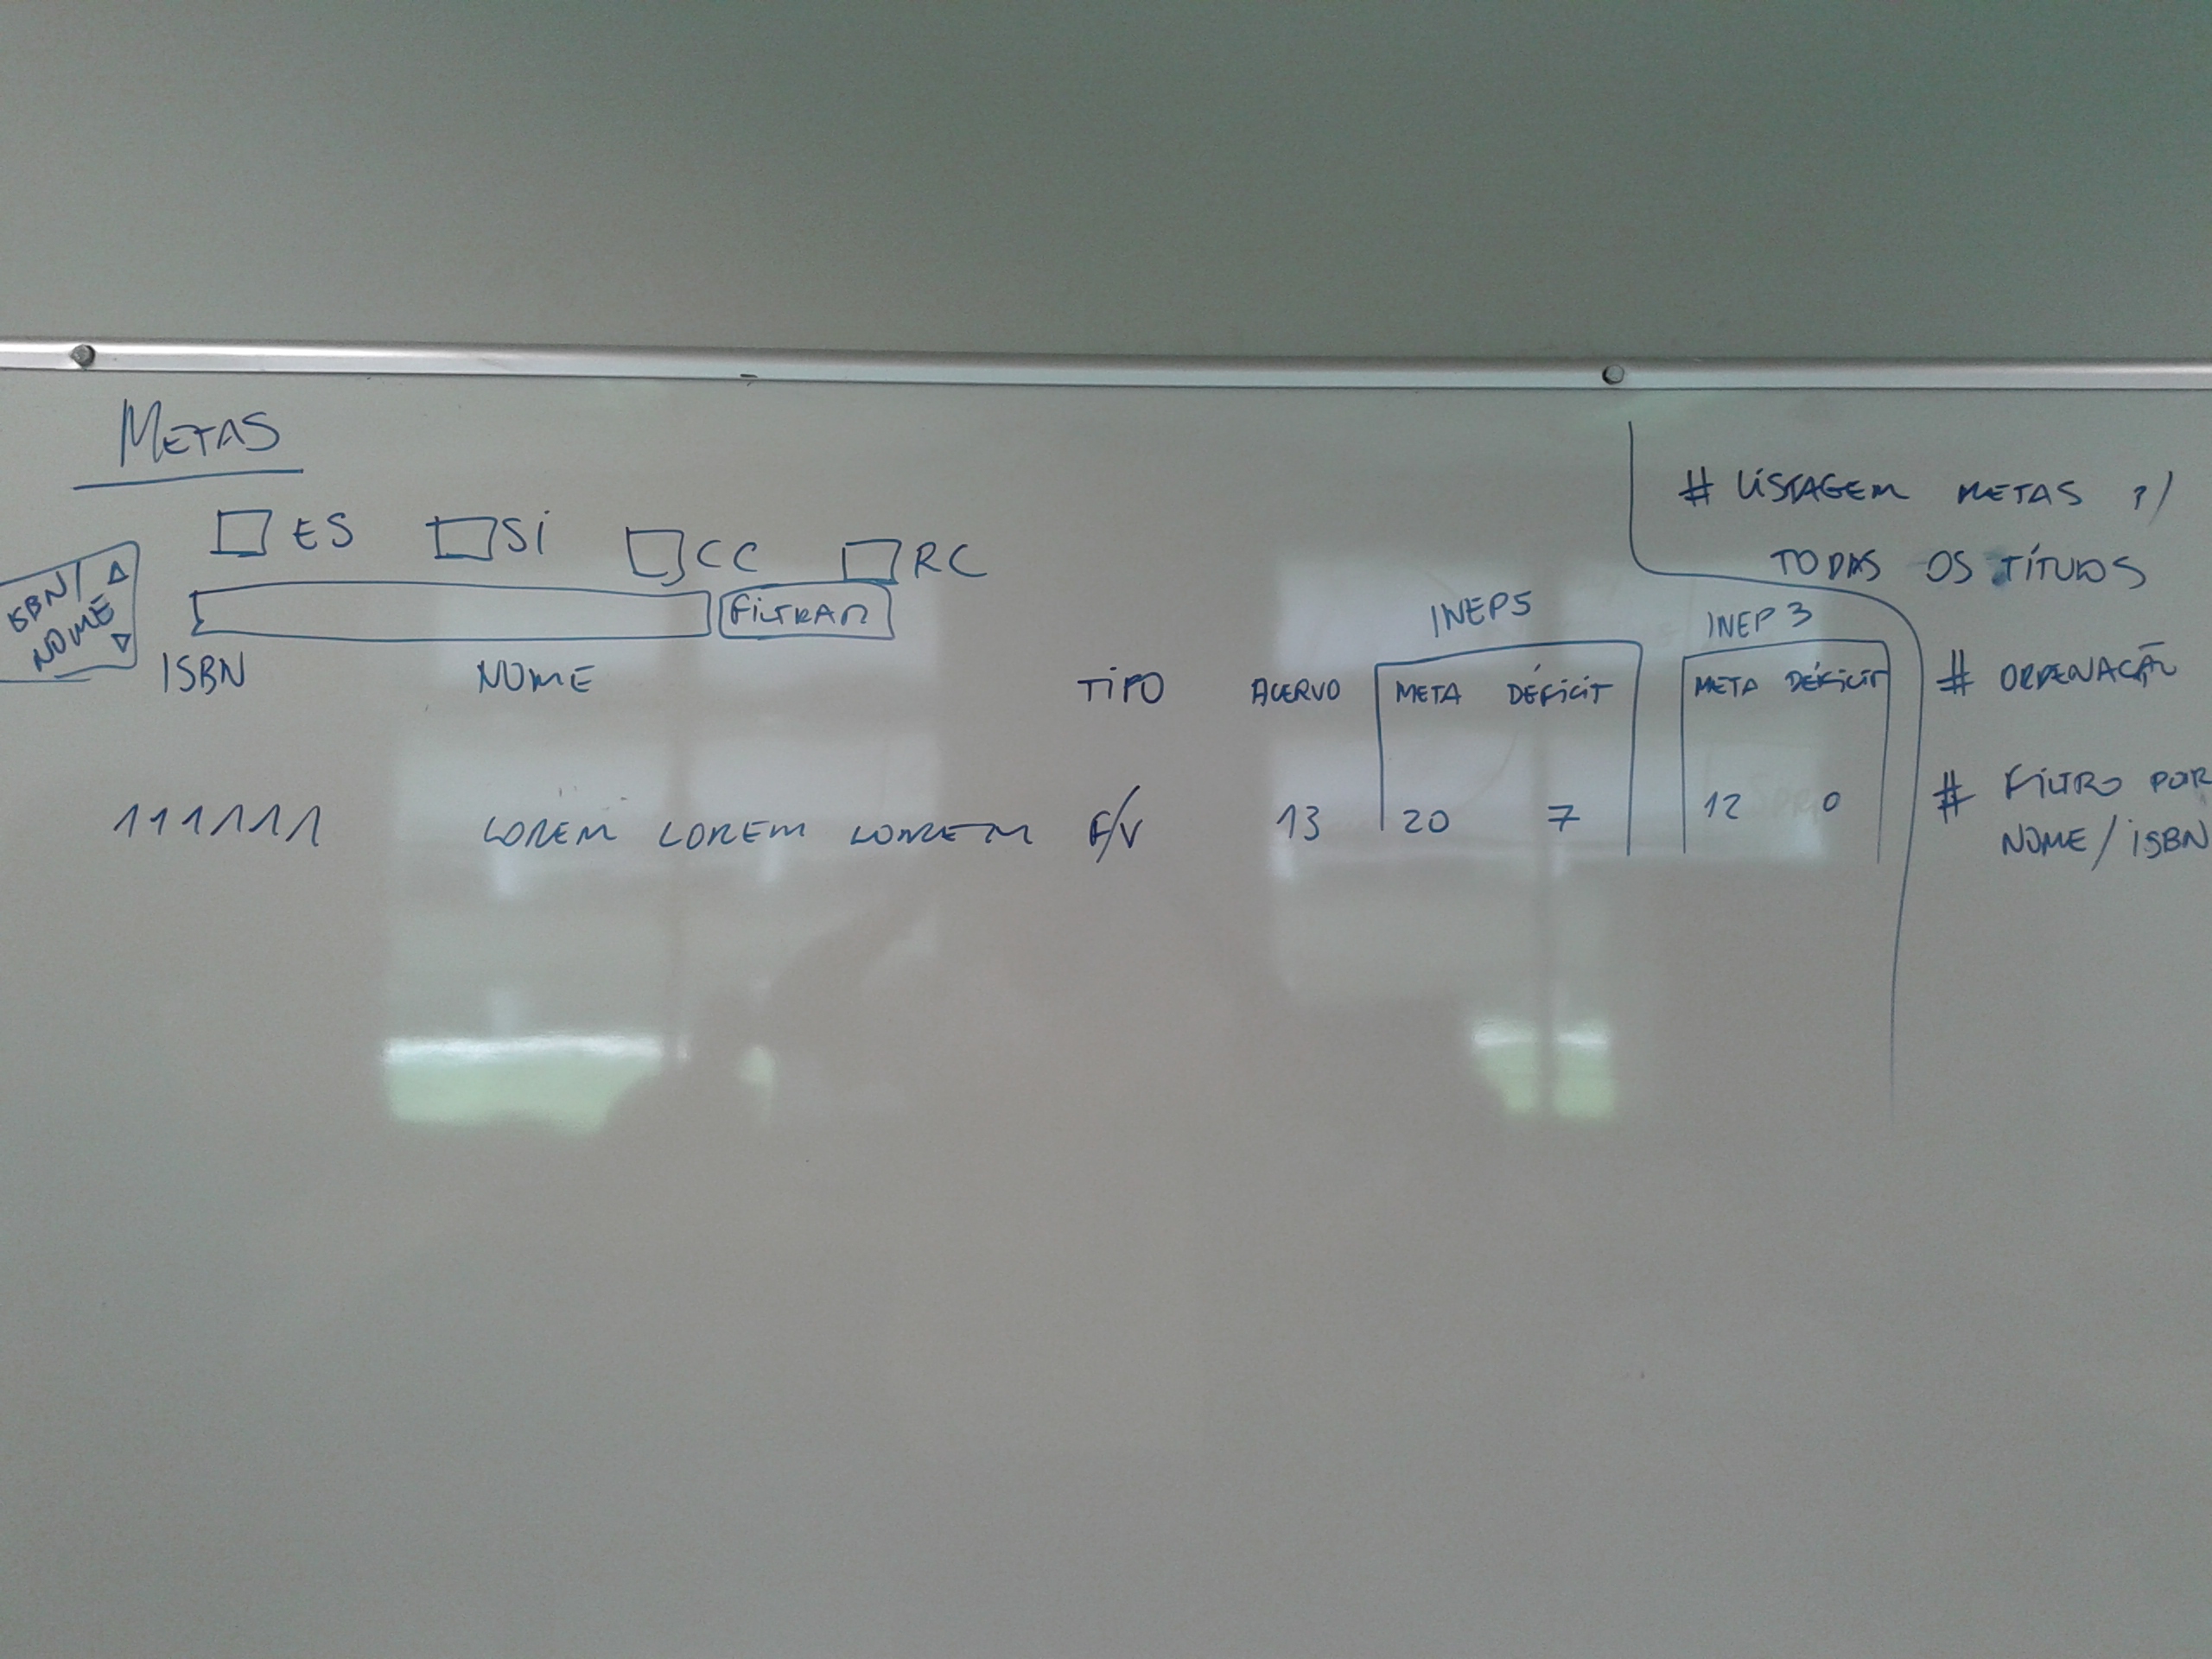 METAS
ES SI CC RC
ISBN/
NOME
FILTRAR
INEP5 INEP 3
ISBN NOME TIPO ACERVO META DÉFICIT META DÉFICIT
111111 LOREM LOREM LOREM F/V 13 20 7 12 0
# LISTAGEM METAS P/
TODAS OS TÍTULOS
# ORDENAÇÃO
# FILTRO POR
NOME/ISBN